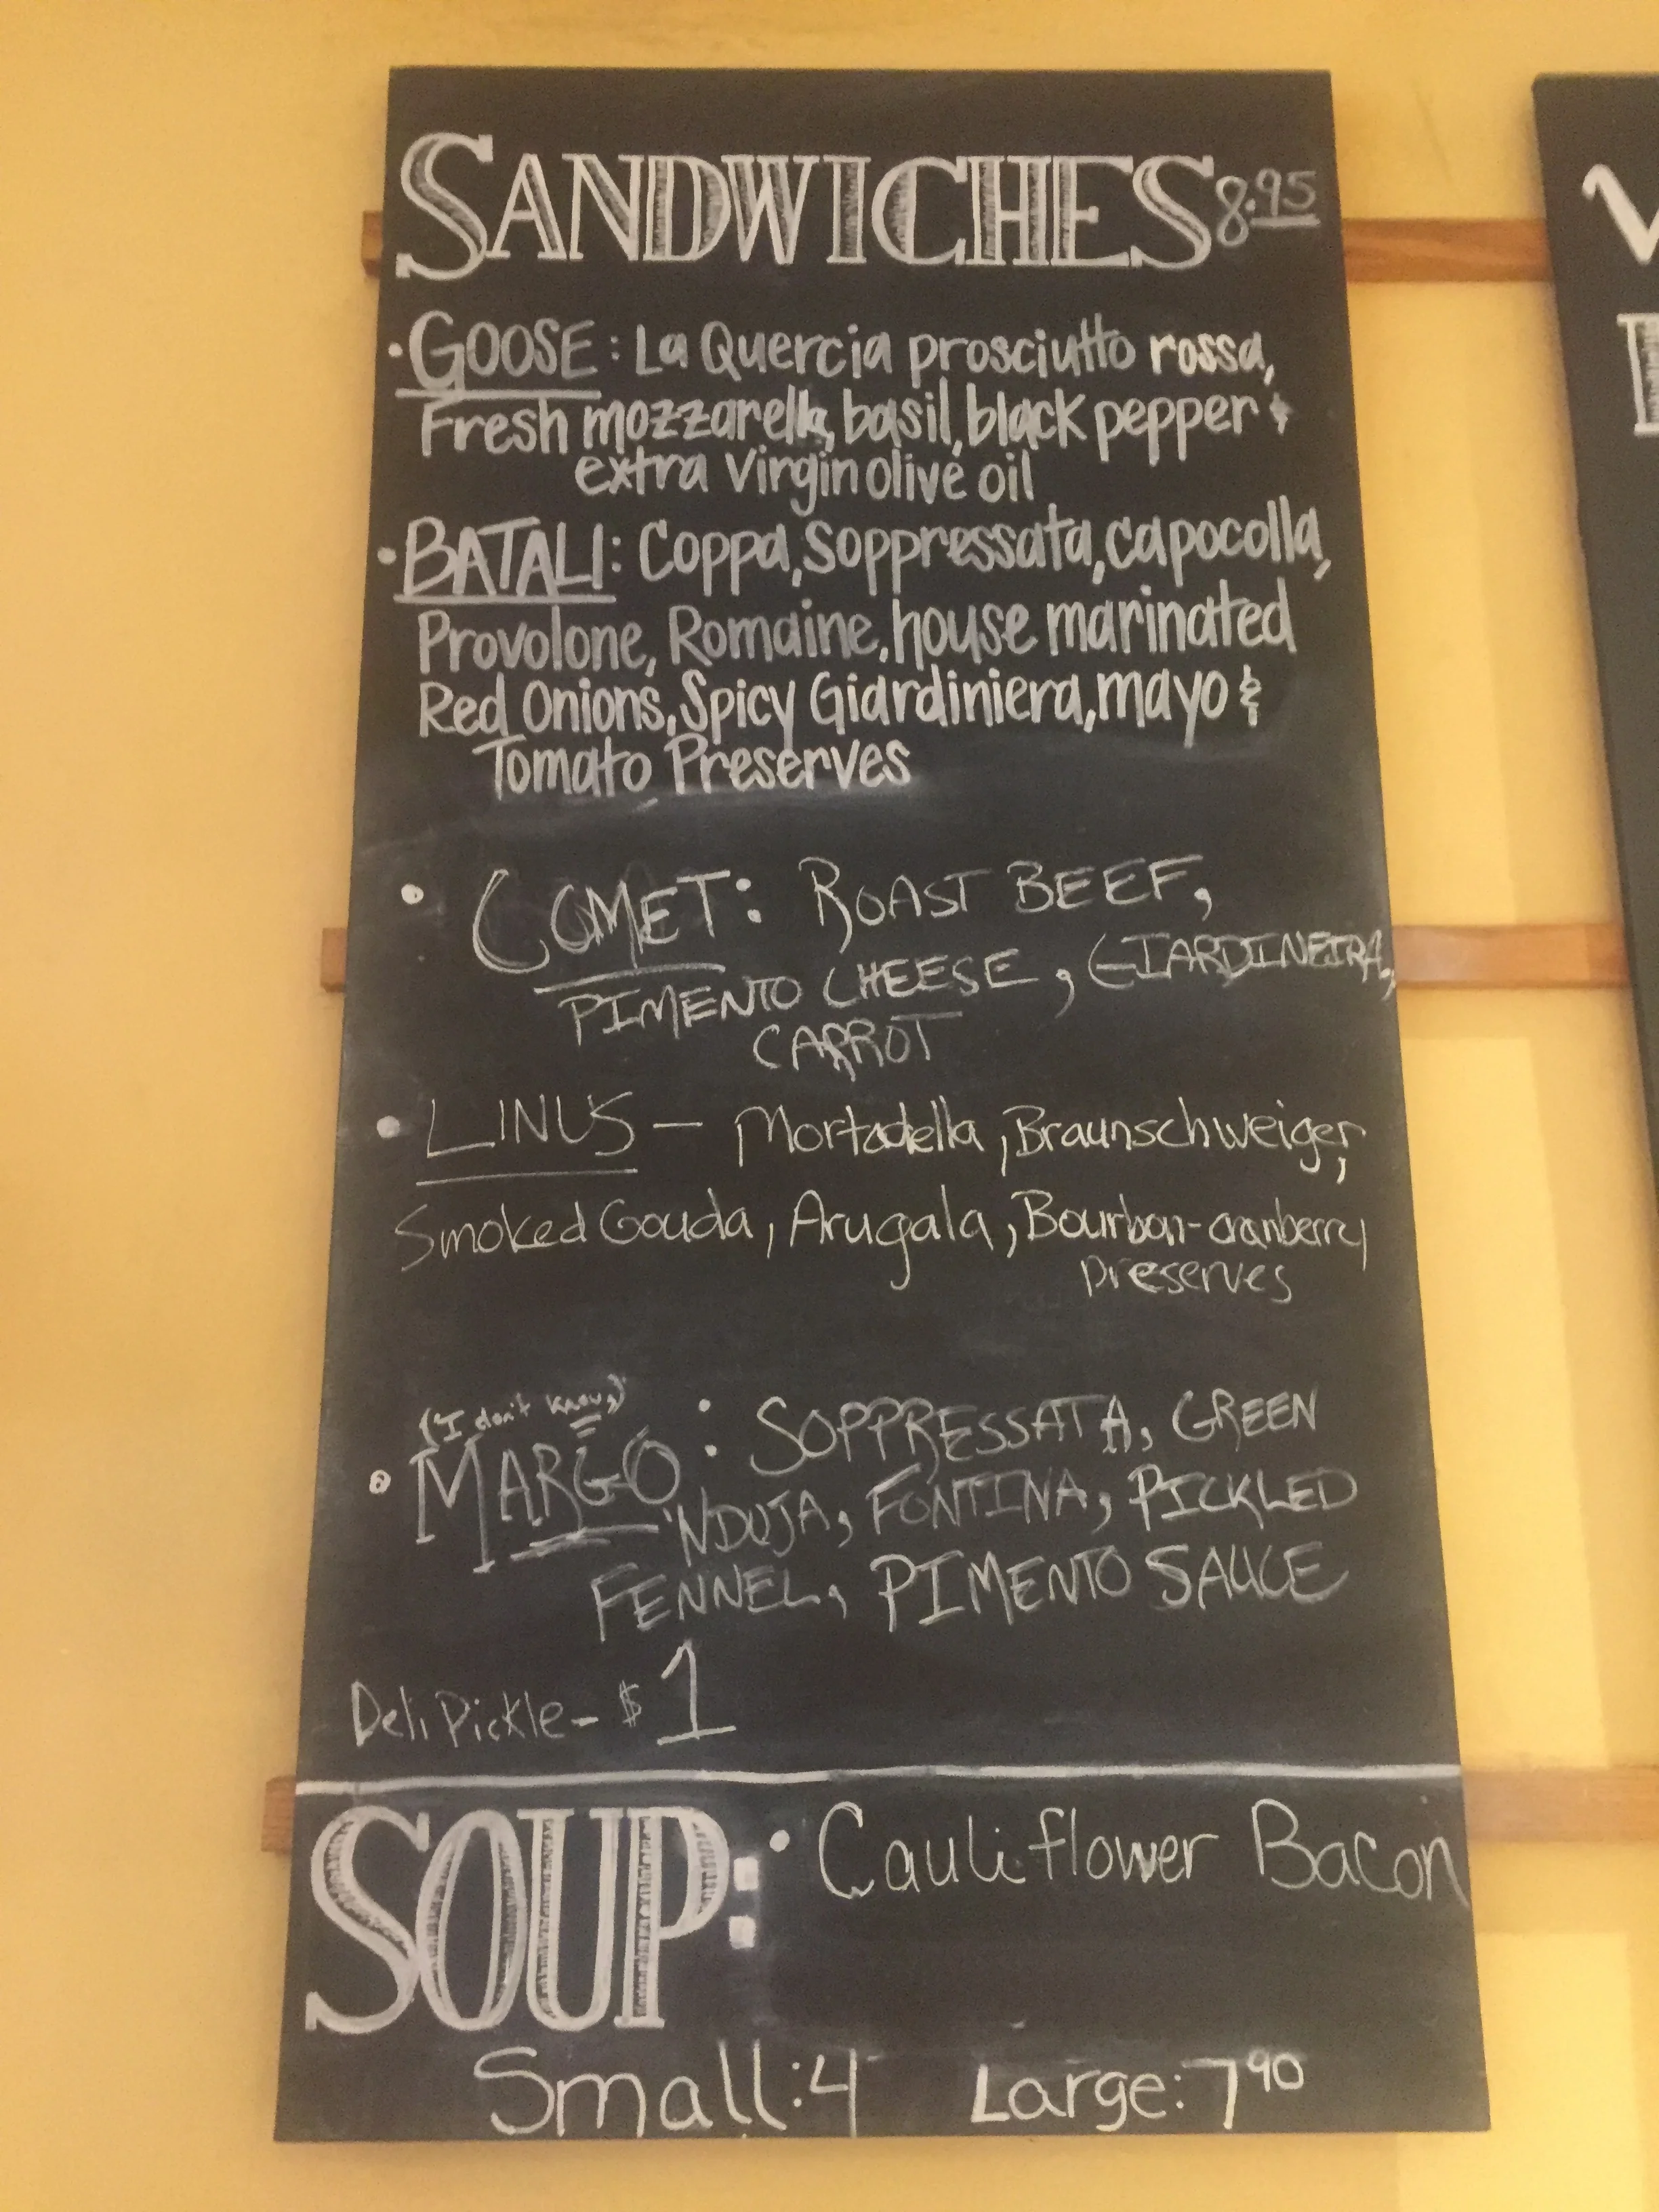 SANDWICHES 8.95
• GOOSE: La Quercia prosciutto rossa,
Fresh mozzarella, basil, black pepper &
extra Virgin olive oil
• BATALI: Coppa, Soppressata, capocolla,
Provolone, Romaine, house marinated
Red Onions, Spicy Giardiniera, mayo &
Tomato Preserves
• COMET: ROAST BEEF,
PIMENTO CHEESE, GIARDINEIRA,
CARROT
• LINUS — Mortadella, Braunschweiger,
Smoked Gouda, Arugala, Bourbon-cranberry
preserves
(I don't know)
• MARGO: SOPPRESSATA, GREEN
'NDUJA, FONTINA, PICKLED
FENNEL, PIMENTO SAUCE
Deli Pickle - $1
SOUP: • Cauliflower Bacon
Small: 4 Large: 7 90